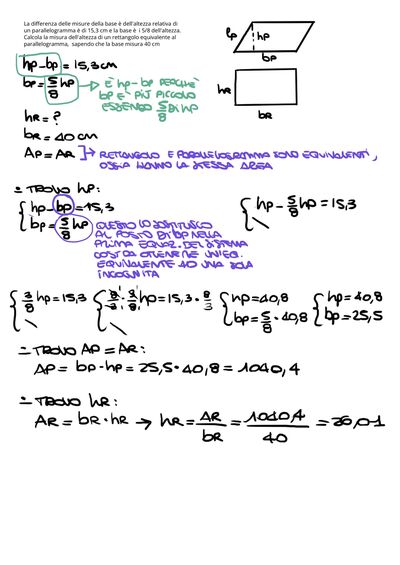 La differenza delle misure della base è dell'altezza relativa di
un parallelogramma è di 15,3 cm e la base è i 5/8 dell'altezza.
Calcola la misura dell'altezza di un rettangolo equivalente al
parallelogramma, sapendo che la base misura 40 cm
lp hp
bp
hp-bp = 15,3 cm
bp = 5/8 hp → È hp-bp PERCHÈ
bp È PIÙ PICCOLO
ESSENDO 5/8 DI hp
hR
bR
hR = ?
bR = 40 cm
AP = AR ] → RETTANGOLO E PARALLELOGRAMMA SONO EQUIVALENTI,
OSSIA HANNO LA STESSA AREA
- TROVO hp:
{ hp - bp = 15,3
bp = 5/8 hp
QUESTO LO SOSTITUISCO
AL POSTO DI bp NELLA
PRIMA EQUAZ. DEL SISTEMA
COSÌ DA OTTENERE UN'EQ.
EQUIVALENTE AD UNA SOLA
INCOGNITA
{ hp - 5/8 hp = 15,3
{ 3/8 hp = 15,3
{ 8/3 · 3/8 hp = 15,3 · 8/3
{ hp = 40,8
bp = 5/8 · 40,8
{ hp = 40,8
bp = 25,5
- TROVO AP = AR:
AP = bp · hp = 25,5 · 40,8 = 1040,4
- TROVO hR:
AR = bR · hR → hR = AR/bR = 1040,4/40 = 26,01